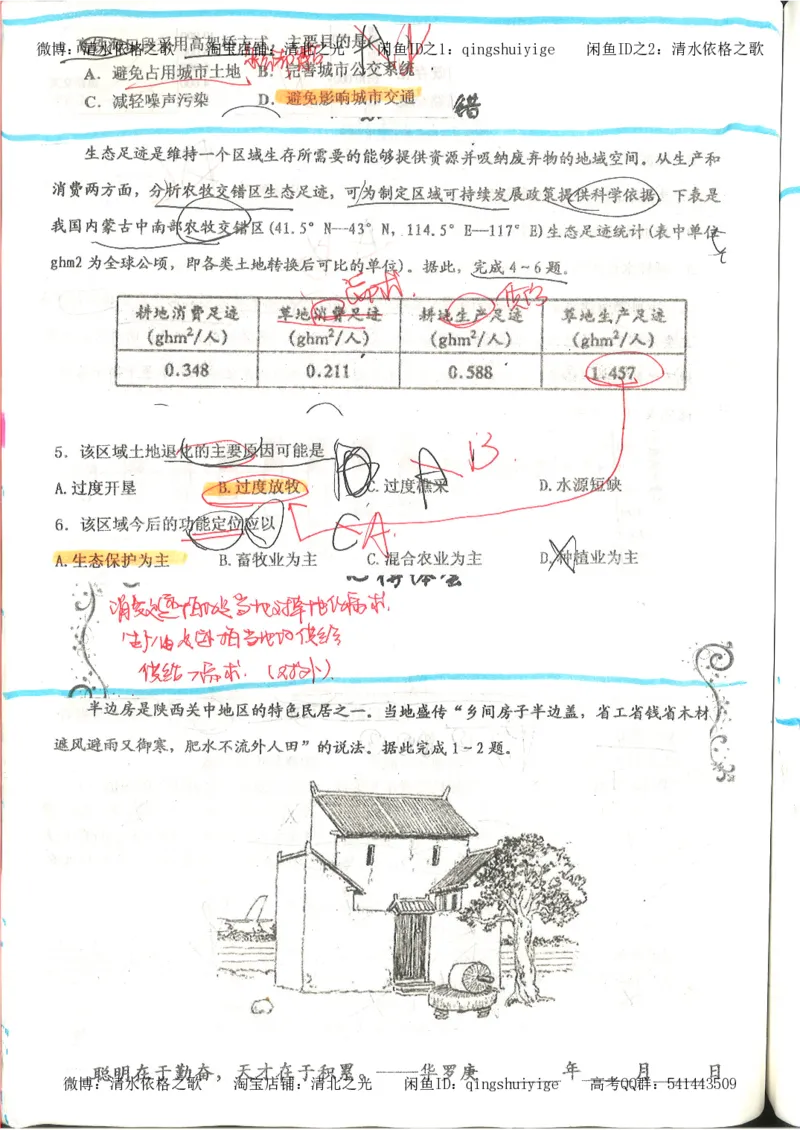 微博：清水依格之歌 淘宝店铺：清北之光 闲鱼ID之1：qingshuiyige 闲鱼ID之2：清水依格之歌
采用高架桥方式，主要目的是（ ）
A．避免占用城市土地 B．完善城市公交系统
C．减轻噪声污染 D．避免影响城市交通
错
生态足迹是维持一个区域生存所需要的能够提供资源并吸纳废弃物的地域空间。从生产和
消费两方面，分析农牧交错区生态足迹，可为制定区域可持续发展政策提供科学依据。下表是
我国内蒙古中南部农牧交错区(41.5° N—43° N，114.5° E—117° E)生态足迹统计(表中单位
ghm2为全球公顷，即各类土地转换后可比的单位)。据此，完成4~6题。
耕地消费足迹 草地消费足迹 耕地生产足迹 草地生产足迹
(ghm²/人) (ghm²/人) (ghm²/人) (ghm²/人)
0.348 0.211 0.588 1.457
5．该区域土地退化的主要原因可能是 A B.
A.过度开垦 B.过度放牧 C.过度樵采 D.水源短缺
6．该区域今后的功能定位应以 C A.
A.生态保护为主 B.畜牧业为主 C.混合农业为主 D.种植业为主
心得体会
供给>需求.（对外）.
半边房是陕西关中地区的特色民居之一。当地盛传“乡间房子半边盖，省工省钱省木材，
遮风避雨又御寒，肥水不流外人田”的说法。据此完成1~2题。
聪明在于勤奋，天才在于积累。——华罗庚 年 月 日
微博：清水依格之歌 淘宝店铺：清北之光 闲鱼ID：qingshuiyige 高考QQ群：541443509